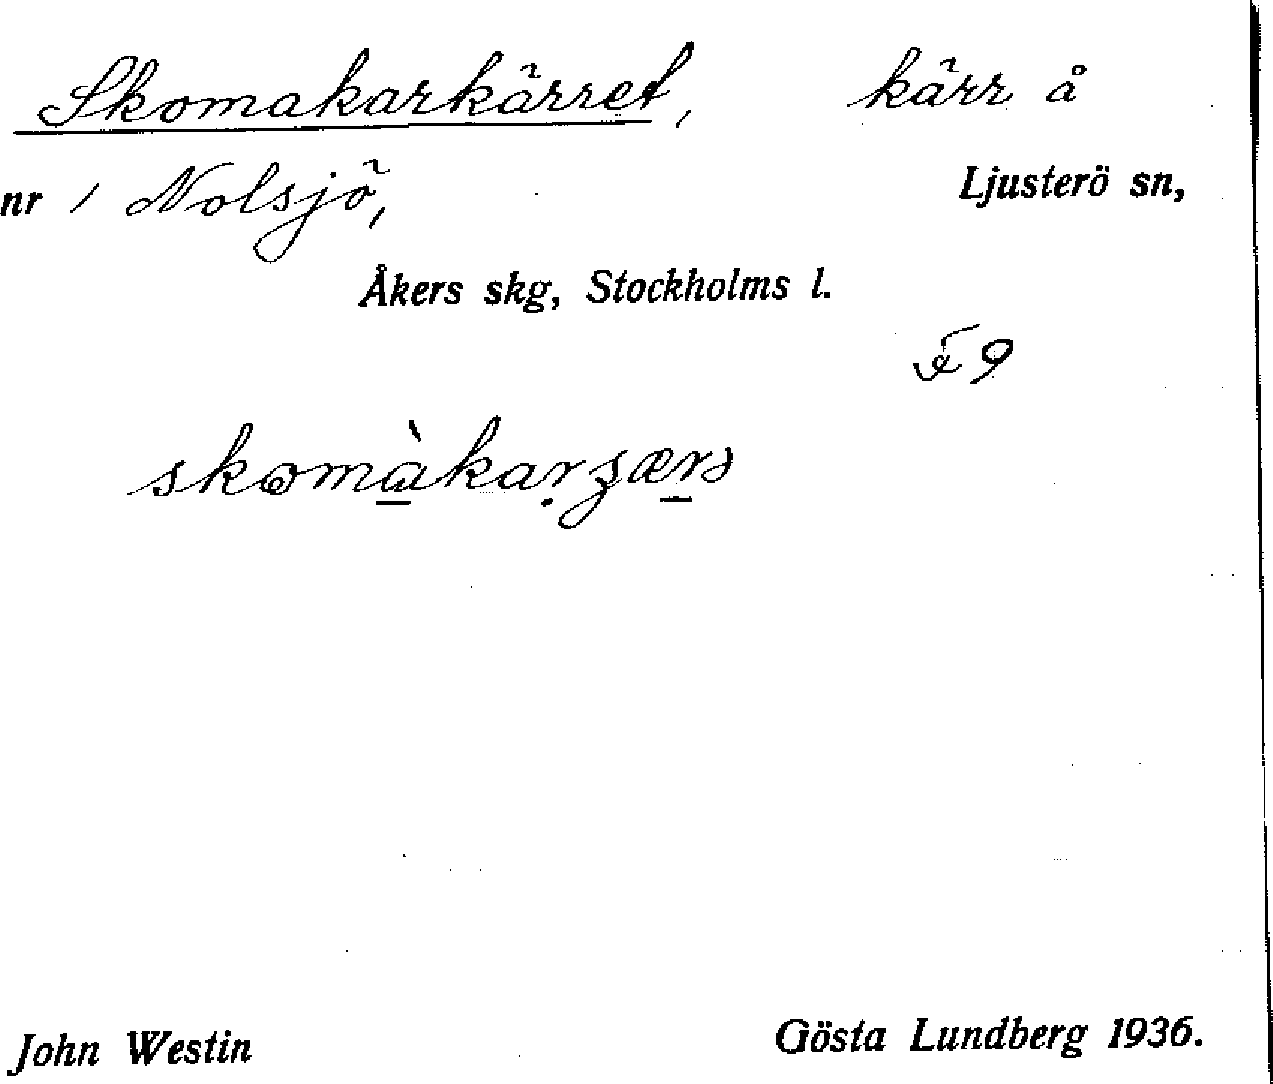 Skomakarkärret, kärr å
nr 1 Nolsjö, Ljusterö sn,
Åkers skg, Stockholms l.
F 9
John Westin Gösta Lundberg 1936.